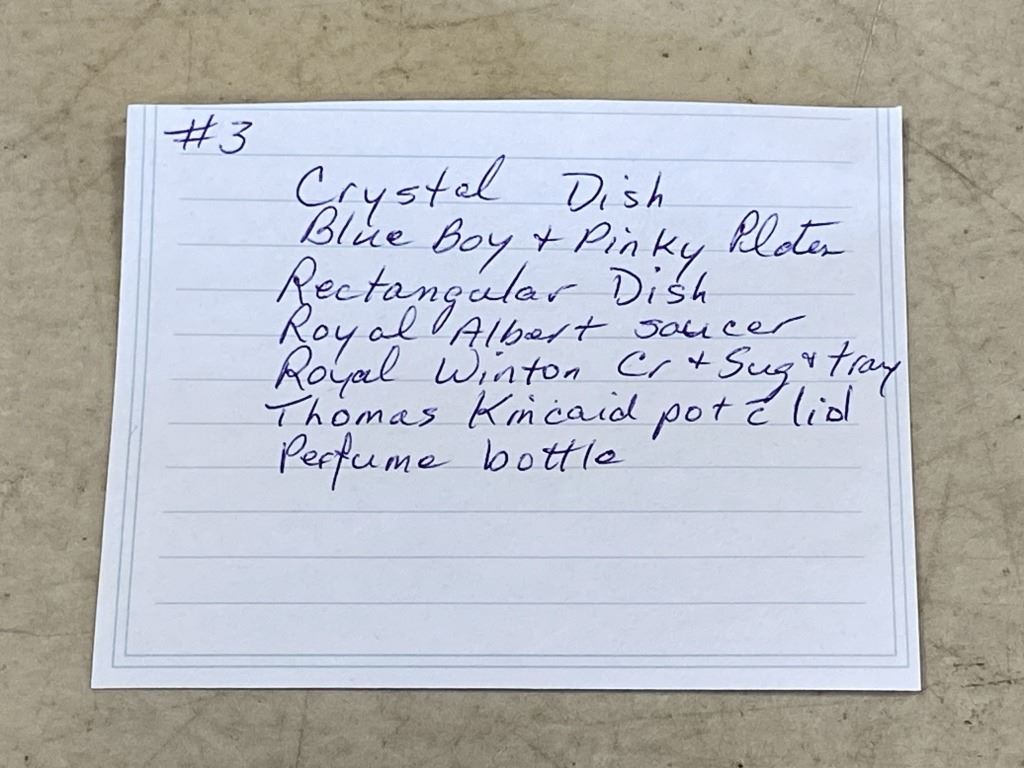 #3
Crystal Dish
Blue Boy + Pinky Plates
Rectangular Dish
Royal Albert saucer
Royal Winton Cr + Sug + tray
Thomas Kincaid pot c̄ lid
Perfume bottle